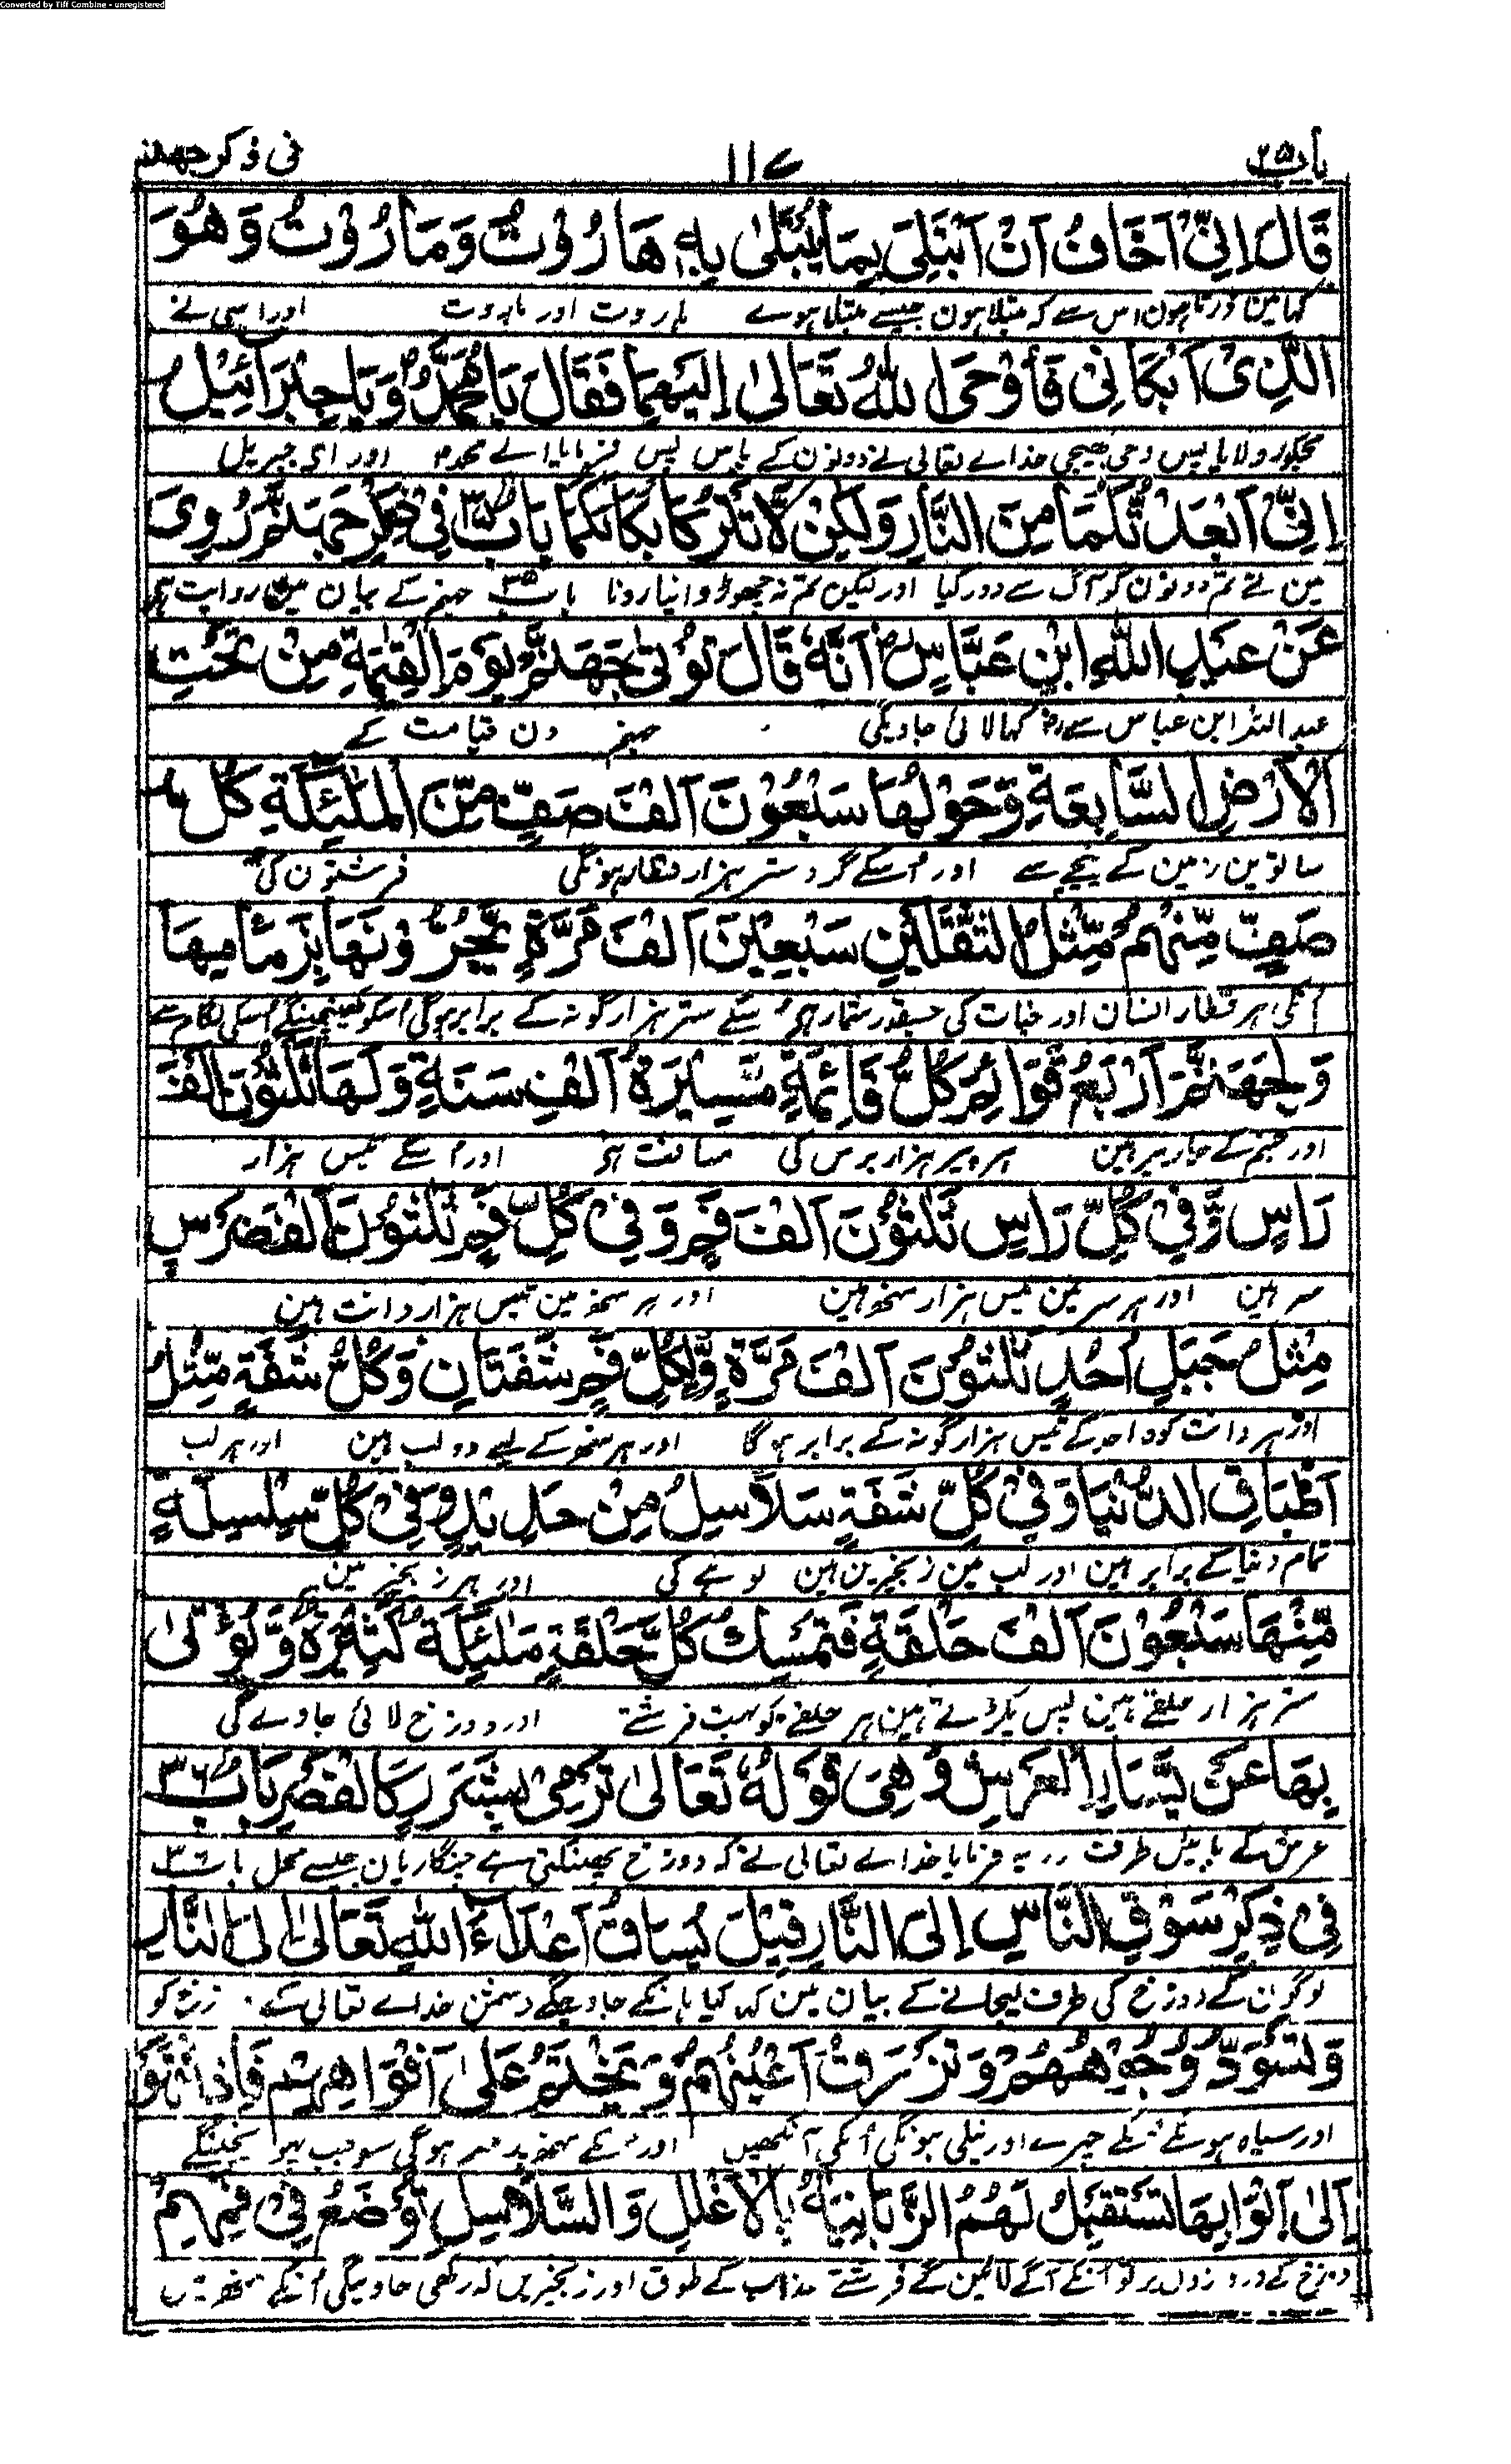 Converted by Tiff Combine - unregistered
باب ۳۵ ۱۱۷ فی ذکر جهنم
قَالَ اِنِّیْ اَخَافُ اَنْ اُبْتَلٰی بِمَا یُبْتَلٰی بِهٖ هَارُوْتُ وَمَارُوْتُ وَهُوَ
کہا مین ڈرتا ہون اس سے کہ مبتلا ہون جیسے مبتلا ہوے ہاروت اور ماروت اور اسی نے
الَّذِیْ اَبْکَانِیْ فَاَوْحَی اللّٰهُ تَعَالٰی اِلَیْهِمَا فَقَالَ یَا مُحَمَّدُ وَیَا جِبْرَائِیْلُ
مجکو رولایا پس وحی بھیجی خداے تعالی نے دونون کے پاس پس فرمایا اے محمد اور ای جبریل
اِنِّیْ اَبْعَدْتُّکُمَا مِنَ النَّارِ وَلٰکِنْ لَّا تَتْرُکَا بُکَائَکُمَا بَابُ ۳۵ فِیْ ذِکْرِ جَهَنَّمَ رُوِیَ
مین نے تم دونون کو آگ سے دور کیا اور لیکن تم نہ چھوڑو اپنا رونا باب ۳۵ جہنم کے بیان مین روایت ہے
عَنْ عَبْدِ اللّٰهِ ابْنِ عَبَّاسٍ رض اَنَّهٗ قَالَ تُوْتٰی جَهَنَّمُ یَوْمَ الْقِیٰمَةِ مِنْ تَحْتِ
عبد اللہ ابن عباس سے رض کہا لائی جاویگی جہنم دن قیامت کے
الْاَرْضِ السَّابِعَةِ وَحَوْلَهَا سَبْعُوْنَ اَلْفَ صَفٍّ مِّنَ الْمَلٰئِکَةِ کُلُّ
ساتوین زمین کے نیچے سے اور اسکے گرد ستر ہزار قطار ہونگی فرشتون کی
صَفٍّ مِّنْهُمْ مِّثْلُ الثَّقَلَیْنِ سَبْعِیْنَ اَلْفَ مَرَّةٍ یَّجُرُّوْنَهَا بِزِمَامِهَا
انکی ہر قطار انسان اور جنات کی جسقدر شمار ہے اسکے ستر ہزار گونہ کے برابر ہوگی اسکو کھینچینگے اسکی لگام سے
وَلِجَهَنَّمَ اَرْبَعُ قَوَائِمَ کُلُّ قَائِمَةٍ مَّسِیْرَةُ اَلْفِ سَنَةٍ وَلَهَا ثَلٰثُوْنَ اَلْفَ
اور جہنم کے چار پیر ہین ہر پیر ہزار برس کی مسافت ہے اور اسکے تیس ہزار
رَاْسٍ وَّفِیْ کُلِّ رَاْسٍ ثَلٰثُوْنَ اَلْفَ فَمٍ وَفِیْ کُلِّ فَمٍ ثَلٰثُوْنَ اَلْفَ ضِرْسٍ
سر ہین اور ہر سر مین تیس ہزار منھ ہین اور ہر منھ مین تیس ہزار دانت ہین
مِثْلُ جَبَلِ اُحُدٍ ثَلٰثُوْنَ اَلْفَ مَرَّةٍ وَّلِکُلِّ فَمٍ شَفَتَانِ وَکُلُّ شَفَةٍ مِّثْلُ
اور ہر دانت کوہ احد کے تیس ہزار گونہ کے برابر ہوگا اور ہر منھ کے لیے دو لب ہین اور ہر لب
اَطْبَاقِ الدُّنْیَا وَفِیْ کُلِّ شَفَةٍ سَلَاسِلُ مِنْ حَدِیْدٍ وَفِیْ کُلِّ سِلْسِلَةٍ
تمام دنیا کے برابر ہین اور لب مین زنجیرین ہین لوہے کی اور ہر زنجیر مین
مِّنْهَا سَبْعُوْنَ اَلْفَ حَلْقَةٍ فَتَمْسِکُ کُلَّ حَلْقَةٍ مَلٰئِکَةٌ کَثِیْرَةٌ وَّتُؤْتٰی
ستر ہزار حلقے ہین پس پکڑتے ہین ہر حلقے کو بہت فرشتے اور دوزخ لائی جاوے گی
بِهَا عَنْ یَّسَارِ الْعَرْشِ وَهِیَ قَوْلُهٗ تَعَالٰی تَرْمِیْ بِشَرَرٍ کَالْقَصْرِ بَابُ ۳۶
عرش کے بائین طرف یہ فرمایا خداے تعالی نے کہ دوزخ پھینکتی ہے چنگاریان جیسے محل باب ۳۶
فِیْ ذِکْرِ سَوْقِ النَّاسِ اِلَی النَّارِ قِیْلَ یُسَاقُ اَعْدَآءُ اللّٰهِ تَعَالٰی اِلَی النَّارِ
لوگون کے دوزخ کی طرف لیجانے کے بیان مین کہا گیا ہانکے جاوینگے دشمن خداے تعالی کے
وَتَسْوَدُّ وُجُوْهُهُمْ وَتَزْرَقُّ اَعْیُنُهُمْ وَیُخْتَمُ عَلٰی اَفْوَاهِهِمْ فَاِذَا انْتَهَوْا
اور سیاہ ہونگے انکے چہرے اور نیلی ہونگی انکی آنکھین اور انکے منھ پر مہر ہوگی سو جب پہونچینگے
اِلٰی اَبْوَابِهَا تَسْتَقْبِلُ لَهُمُ الزَّبَانِیَةُ بِالْاَغْلٰلِ وَالسَّلَاسِلِ تُوْضَعُ فِیْ فَمِهِمْ
دوزخ کے دروازون پر تو انکے آگے لائین گے فرشتے عذاب کے طوق اور زنجیرین کہ رکھی جاویگی انکے منھ مین